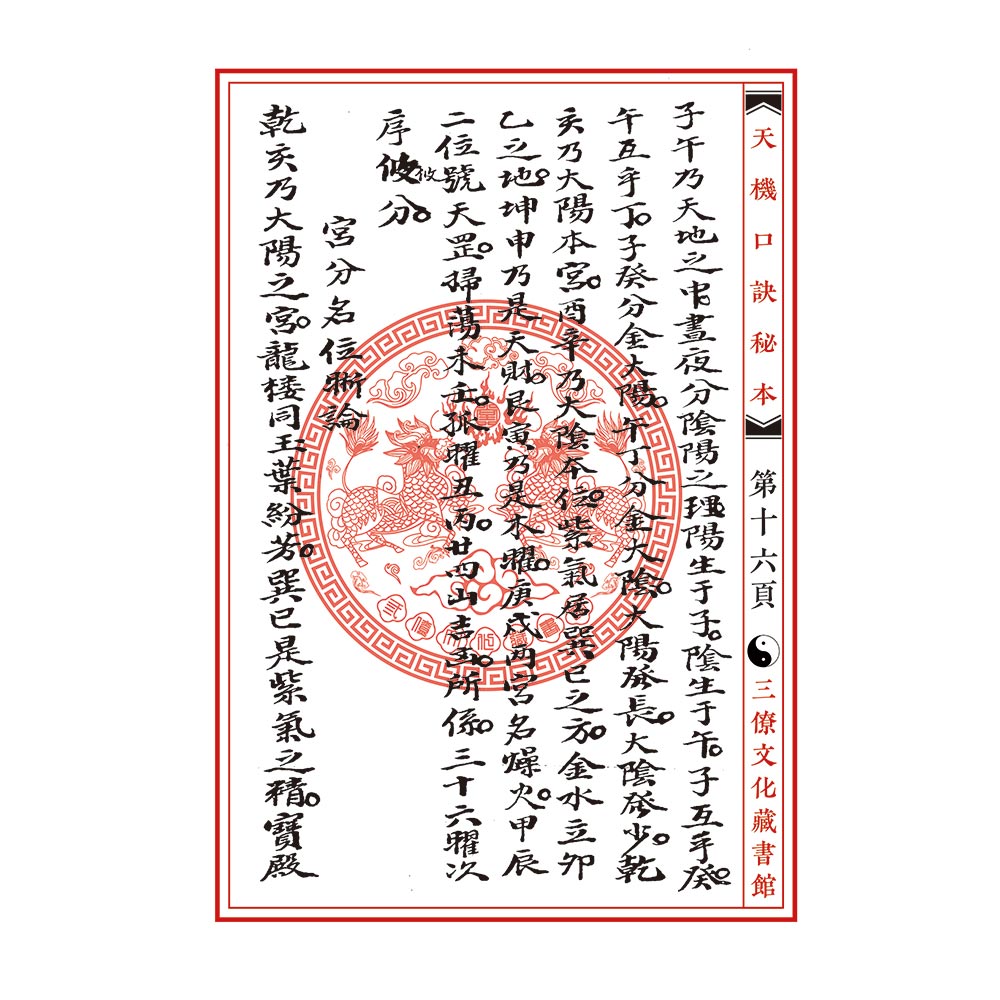 天機口訣秘本
第十六頁
三僚文化藏書館
子午乃天地之中。晝夜分陰陽之理。陽生于子。陰生于午。子互乎癸。
午互乎丁。子癸分金大陽。午丁分金大陰。大陽發長。大陰發少。乾
亥乃大陽本宮。酉辛乃大陰本位。紫氣居巽巳之方。金水立卯
乙之地。坤申乃是天財。艮寅乃是木曜。庚戌兩宮名燥火。甲辰
二位號天罡。掃蕩未壬。孤曜丑丙。廿四山吉凶所係。三十六曜次
序攸分。
宮分名位斷論
乾亥乃大陽之宮。龍楼同玉葉紛芳。巽巳是紫氣之積。寶殿